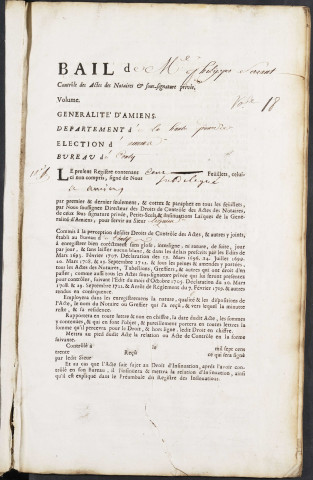 BAIL de Me Philippes
Contrôle des Actes des Notaires & sous-signature privée,
Volume. 18
GENERALITÉ D'AMIENS.
DEPARTEMENT d
ELECTION d'
BUREAU de Conty
LE present Registre contenant Feuillets, celui-
ci non compris, signé de Nous Subdelegué
a amiens
par premier & dernier seulement, & cottez & paraphez en tous ses feüillets,
par Nous soussigné Directeur des Droits de Contrôle des Actes des Notaires,
de ceux sous signature privée, Petits-Scels & Insinuations Laïques de la Gene-
ralité d'Amiens, pour servir au Sieur
Commis à la perception desdits Droits de Contrôle des Actes, & autres y joints,
établi au Bureau de Conty
à enregistrer bien correctement sans glose, interligne, ni rature, de suite, jour
par jour, & sans laisser aucun blanc, & dans les délais prescrits par les Edits de
Mars 1693. Février 1707. Déclarations des 19. Mars 1696. 14. Juillet 1699.
20. Mars 1708. & 29. Septembre 1722. & sous les peines y attenduës & portées,
tous les Actes des Notaires, Tabellions, Greffiers, & autres qui ont droit d'en
passer, comme aussi tous les Actes sous signature privée qui seront présentez
pour y être contrôlez, suivant l'Edit du mois d'Octobre 1705. Déclaration du 20. Mars
1708. & 29. Septembre 1722. & Arrêt de Reglement du 7. Février 1705. & autres
rendus en consequence.
Employera dans les enregistremens la nature, qualité & les dispositions de
l'Acte, le nom du Notaire ou Greffier qui l'a reçû, & vers lequel la minute
reste, & sa residence.
Rapportera en toute lettre & non en chiffre, la date dudit Acte, les sommes
y contenuës, & qui en sont l'objet, & pareillement portera en toutes lettres la
somme qu'il percevra pour le Droit, & hors ligne, ledit Droit en chiffre.
Mettra au pied dudit Acte la relation au Acte de Contrôle en la forme
suivante.
Contrôlé à le mil sept cens
trente Reçû ce qui sera signé
par ledit Sieur
Et au cas que l'Acte soit sujet au Droit d'Insinuation, après l'avoir contrô-
lé en son Bureau, il l'insinuëra & mettra la relation d'Insinuation, ainsi
qu'il est expliqué dans le Préambule du Registre des Insinuations.